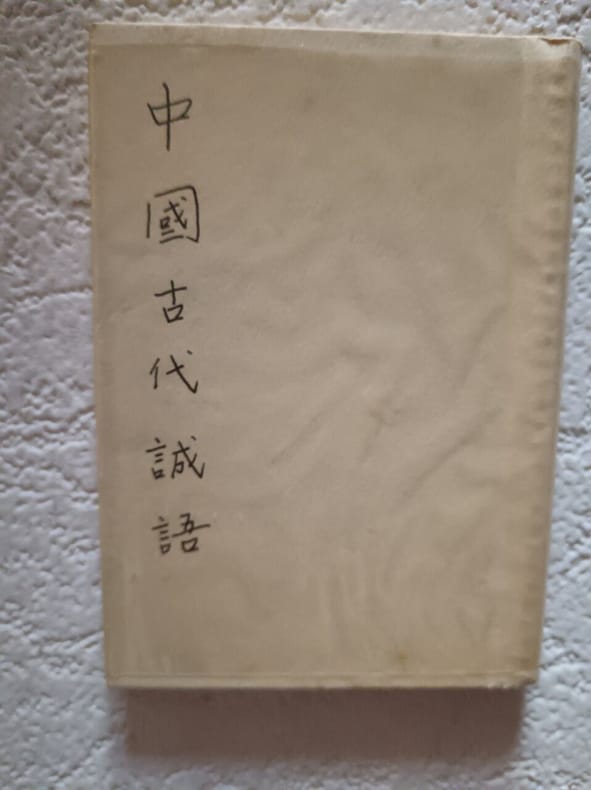 中國古代誠語